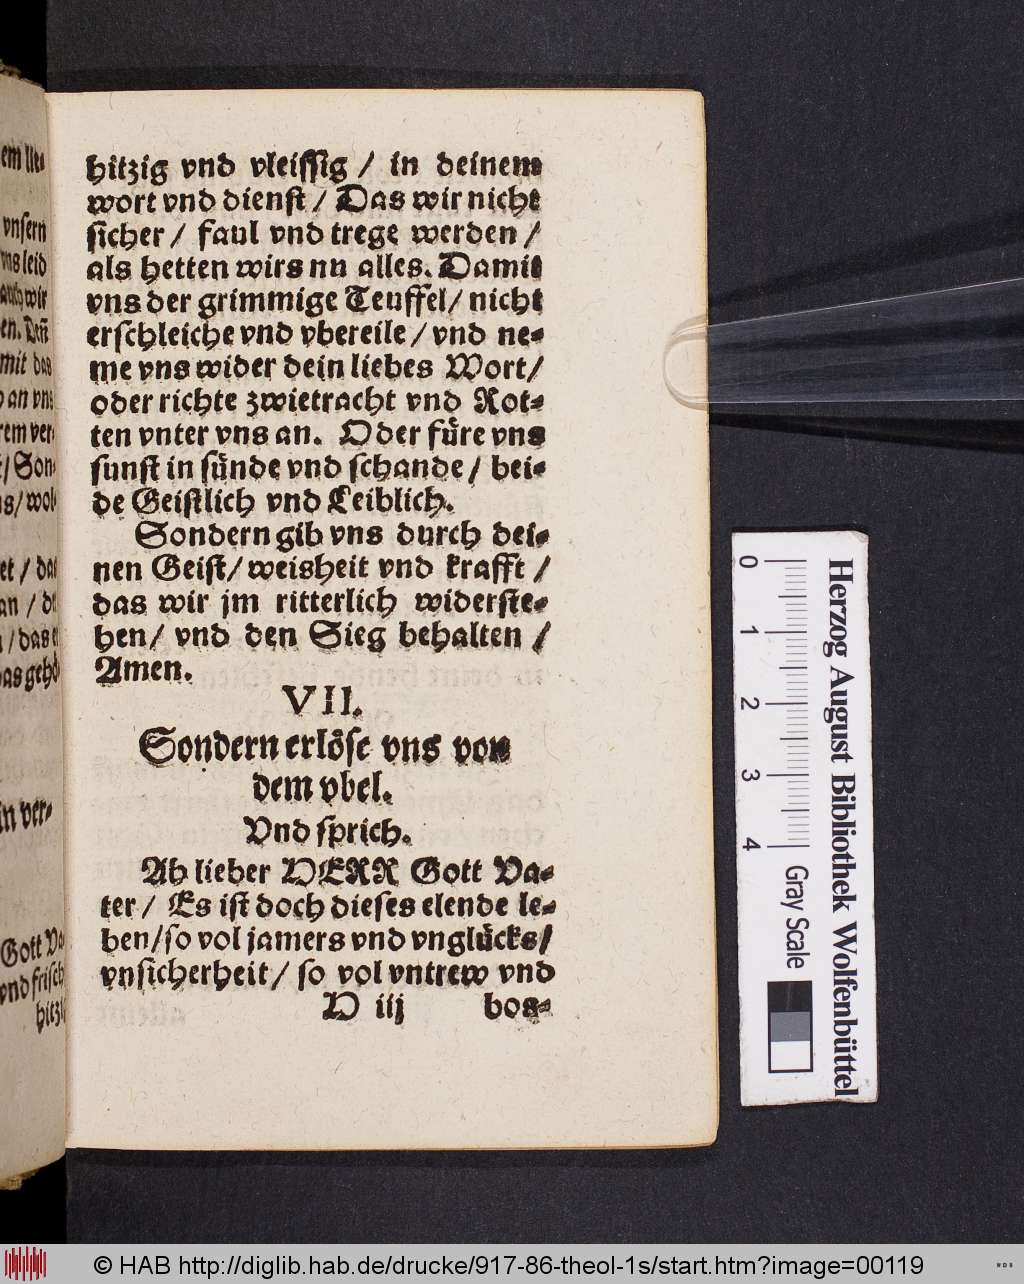 hitzig vnd vleissig / in deinem
wort vnd dienst / Das wir nicht
sicher / faul vnd trege werden /
als hetten wirs nu alles. Damit
vns der grimmige Teuffel / nicht
erschleiche vnd vbereile / vnd ne=
me vns wider dein liebes Wort /
oder richte zwietracht vnd Rot=
ten vnter vns an. Oder füre vns
sunst in sünde vnd schande / bei=
de Geistlich vnd Leiblich.
Sondern gib vns durch dei=
nen Geist / weisheit vnd krafft /
das wir jm ritterlich widerste=
hen / vnd den Sieg behalten /
Amen.
VII.
Sondern erlöse vns von
dem vbel.
Vnd sprich.
Ah lieber HERR Gott Va=
ter / Es ist doch dieses elende le=
ben / so vol jamers vnd vnglücks /
vnsicherheit / so vol vntrew vnd
H iij bos=
em lie=
vnsern
vns leid
auch wir
en. Deñ
mit das
an vns
rem ver=
/ Son=
s / wol
et / das
an /
/ das
as gehö
in ver=
Gott Va
vnd frisch
hitzi
0 1 2 3 4
Gray Scale
Herzog August Bibliothek Wolfenbüttel
© HAB http://diglib.hab.de/drucke/917-86-theol-1s/start.htm?image=00119